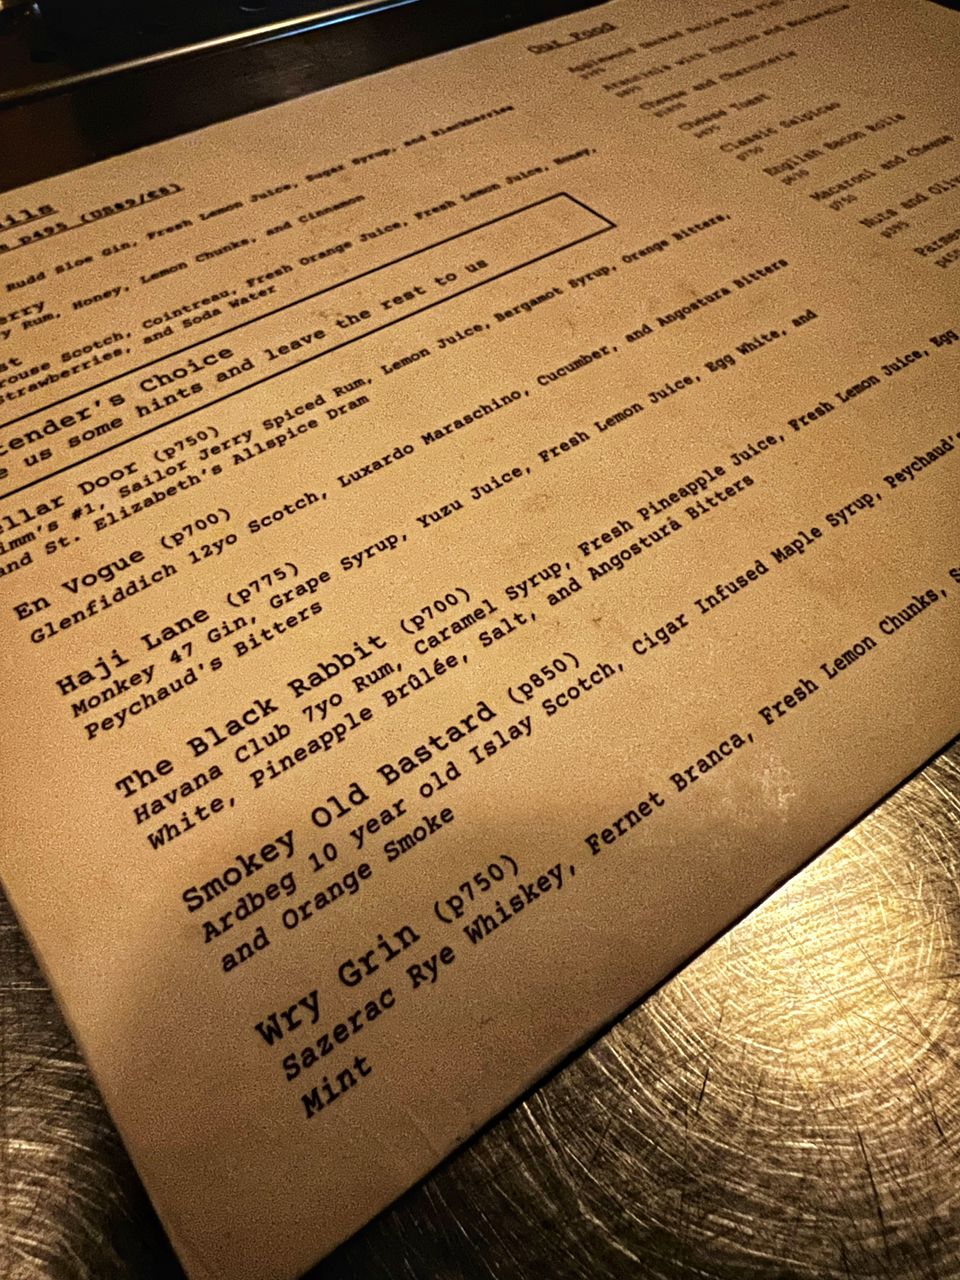 p495 (US$9/£8)
Rudd Sloe Gin, Fresh Lemon Juice, Sugar Syrup, and Blackberries
Rum, Honey, Lemon Chunks, and Cinnamon
Scotch, Cointreau, Fresh Orange Juice, Fresh Lemon Juice, Honey,
Strawberries, and Soda Water
tender's Choice
us some hints and leave the rest to us
ellar Door (p750)
imm's #1, Sailor Jerry Spiced Rum, Lemon Juice, Bergamot Syrup, Orange Bitters,
and St. Elizabeth's Allspice Dram
En Vogue (p700)
Glenfiddich 12yo Scotch, Luxardo Maraschino, Cucumber, and Angostura Bitters
Haji Lane (p775)
Monkey 47 Gin, Grape Syrup, Yuzu Juice, Fresh Lemon Juice, Egg White, and
Peychaud's Bitters
The Black Rabbit (p700)
Havana Club 7yo Rum, Caramel Syrup, Fresh Pineapple Juice, Fresh Lemon Juice, Egg
White, Pineapple Brûlée, Salt, and Angosturà Bitters
Smokey Old Bastard (p850)
Ardbeg 10 year old Islay Scotch, Cigar Infused Maple Syrup, Peychaud's
and Orange Smoke
Wry Grin (p750)
Sazerac Rye Whiskey, Fernet Branca, Fresh Lemon Chunks,
Mint
Our Food
Cheese and Charcuterie
Cheese Toast
Classic Salpicao
p750
English Bacon Rolls
Macaroni and Cheese
p750
Nuts and